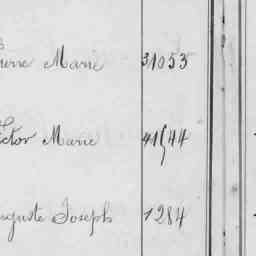 ierre Marie 31053
ictor Marie 41544
uguste Joseph 1284